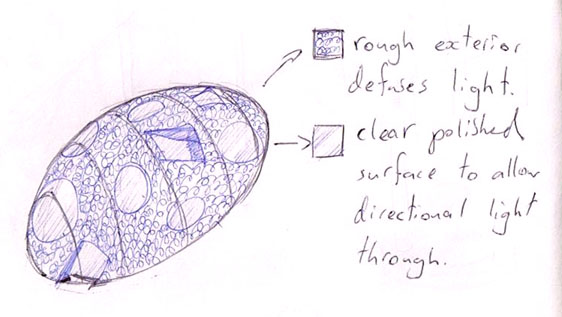 rough exterior
defuses light.
clear polished
surface to allow
directional light
through.